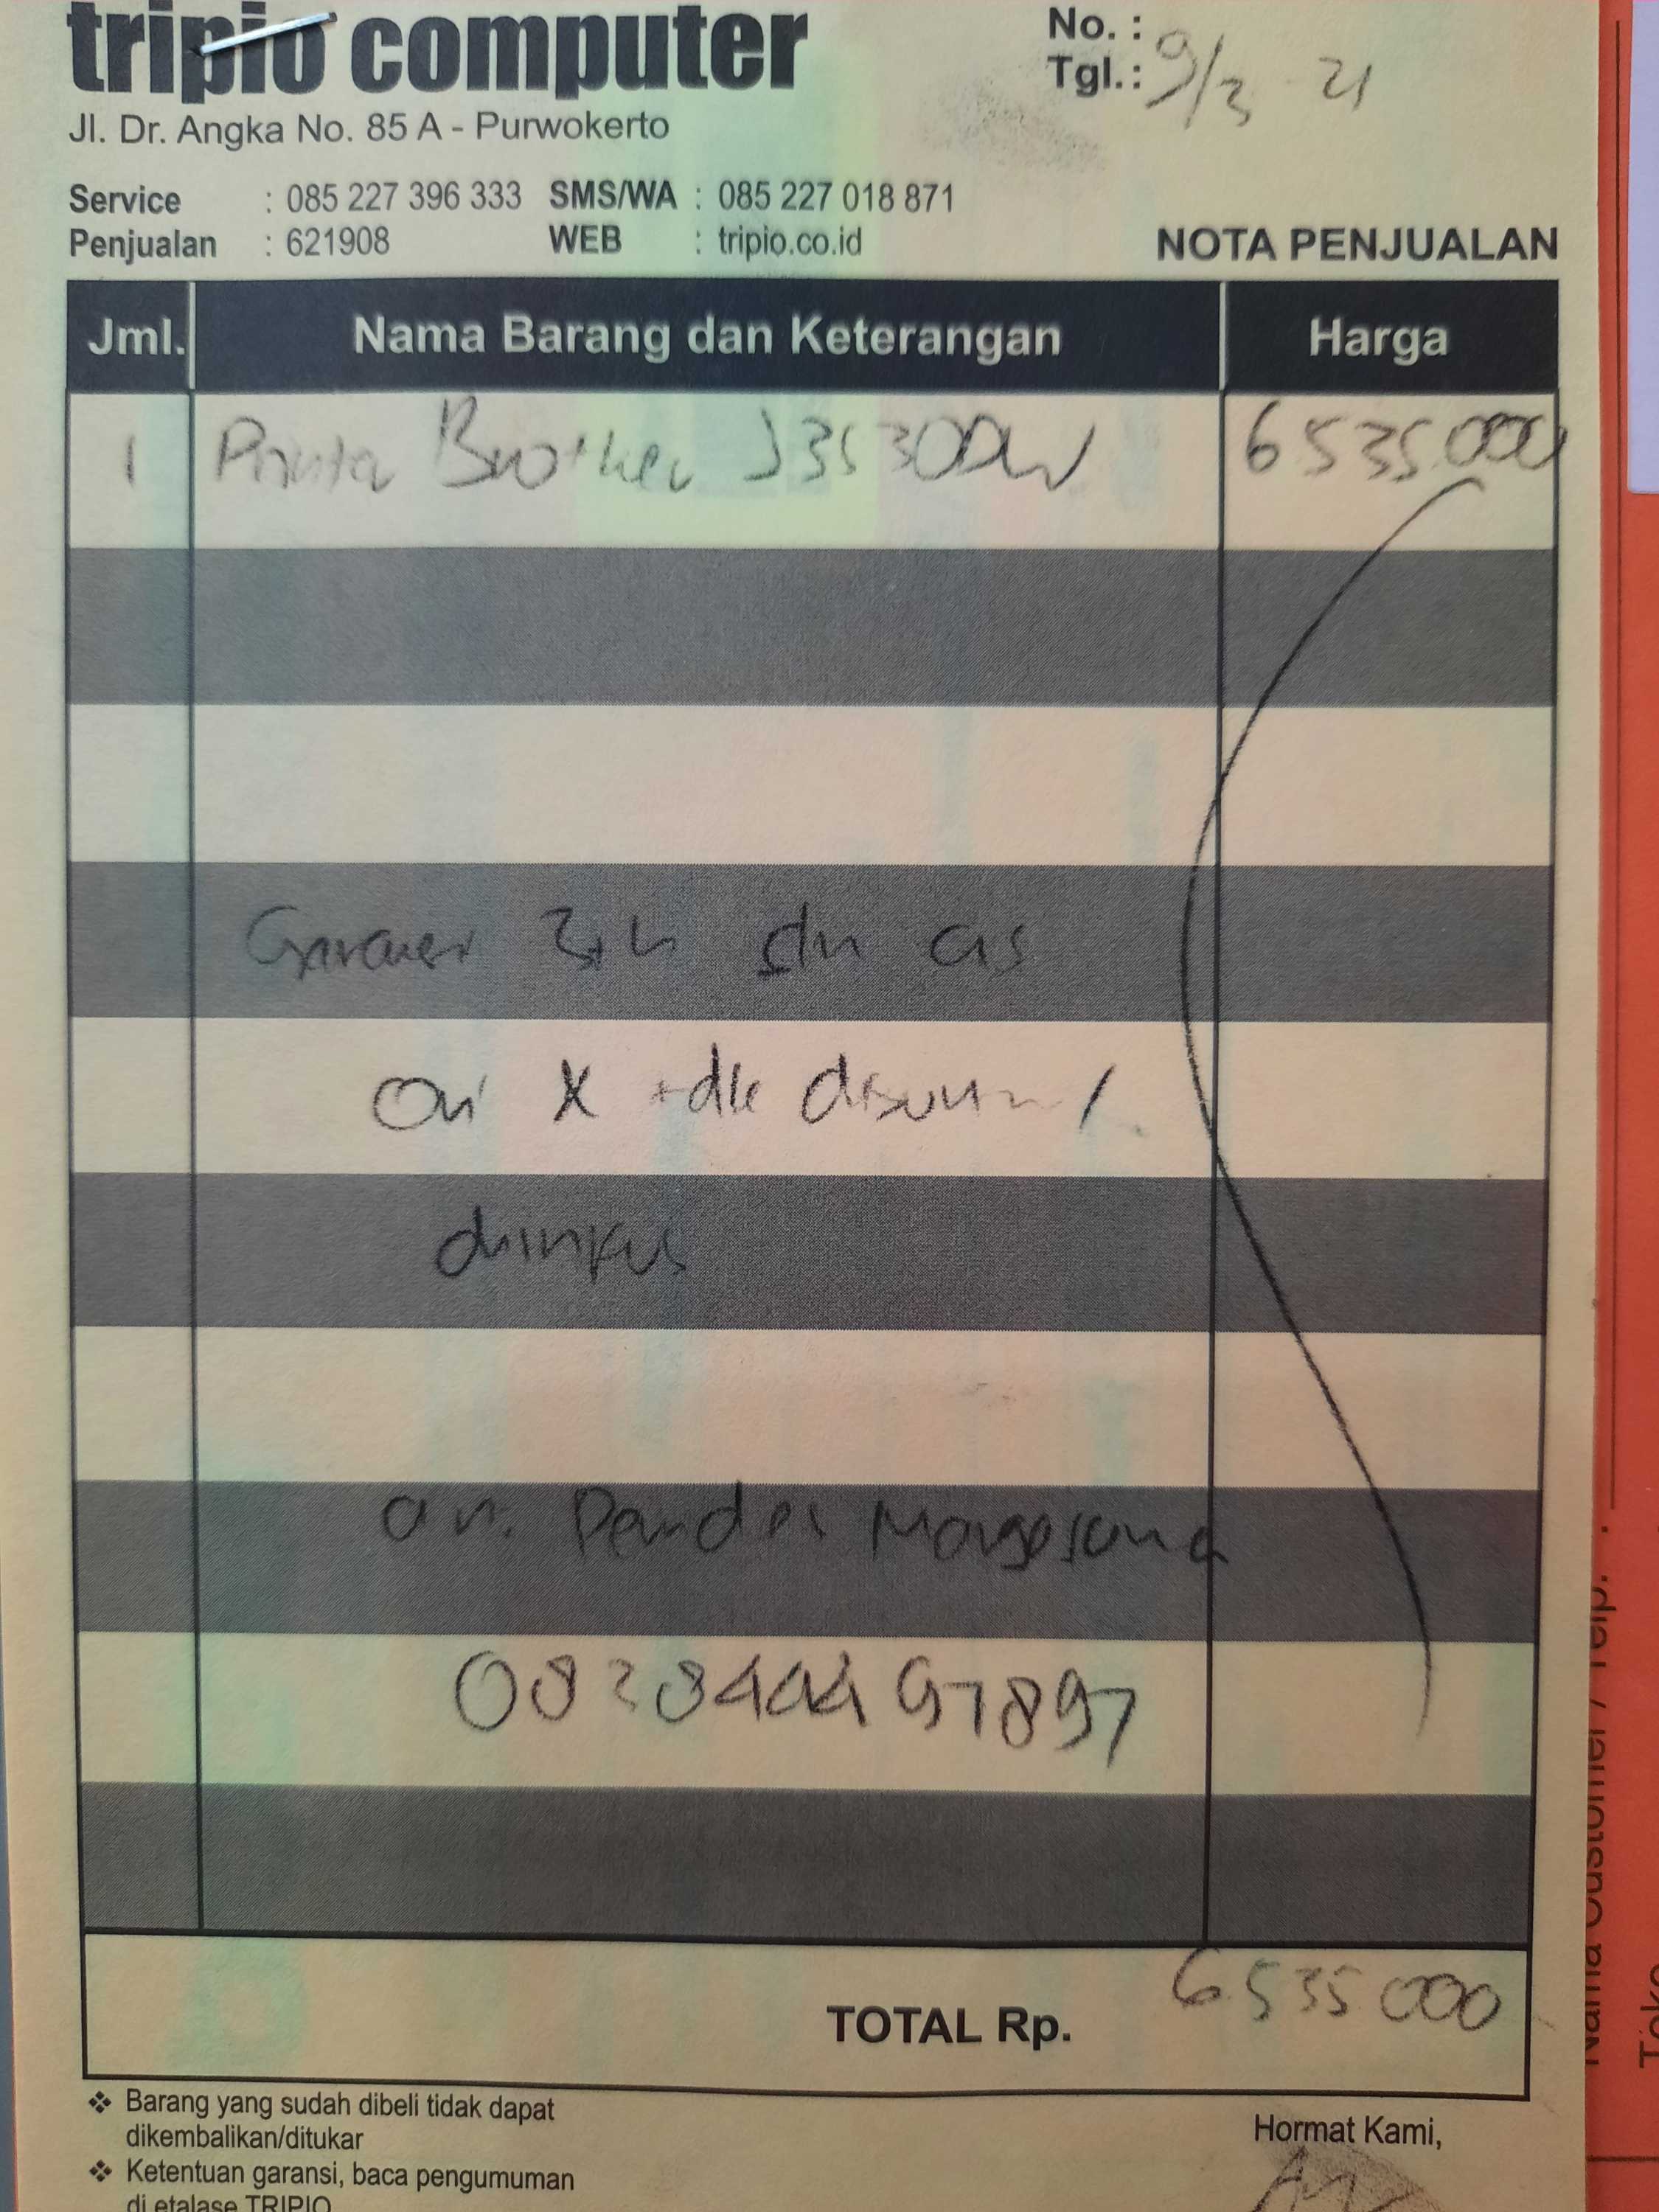 tripio computer
No. :
Tgl.: 9/3 21
Jl. Dr. Angka No. 85 A - Purwokerto
Service : 085 227 396 333 SMS/WA : 085 227 018 871
Penjualan : 621908 WEB : tripio.co.id
NOTA PENJUALAN
Jml. Nama Barang dan Keterangan Harga
1 Printer Brother J3530DW 6535.000
3th
on
an. Pemdes Margasana
082844497897
TOTAL Rp. 6.535.000
Barang yang sudah dibeli tidak dapat
dikembalikan/ditukar
Ketentuan garansi, baca pengumuman
di etalase TRIPIO
Hormat Kami,
Nama Customer / Telp. :
Toko